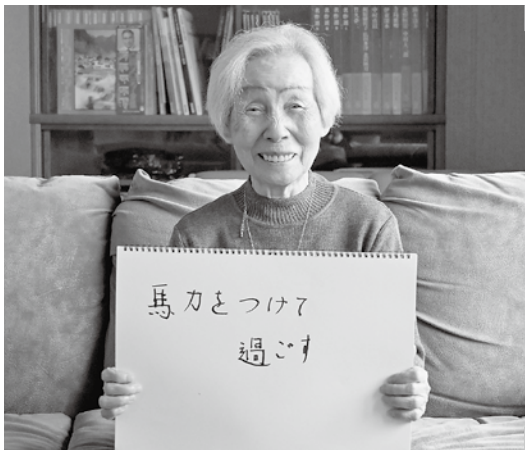 馬力をつけて
過ごす